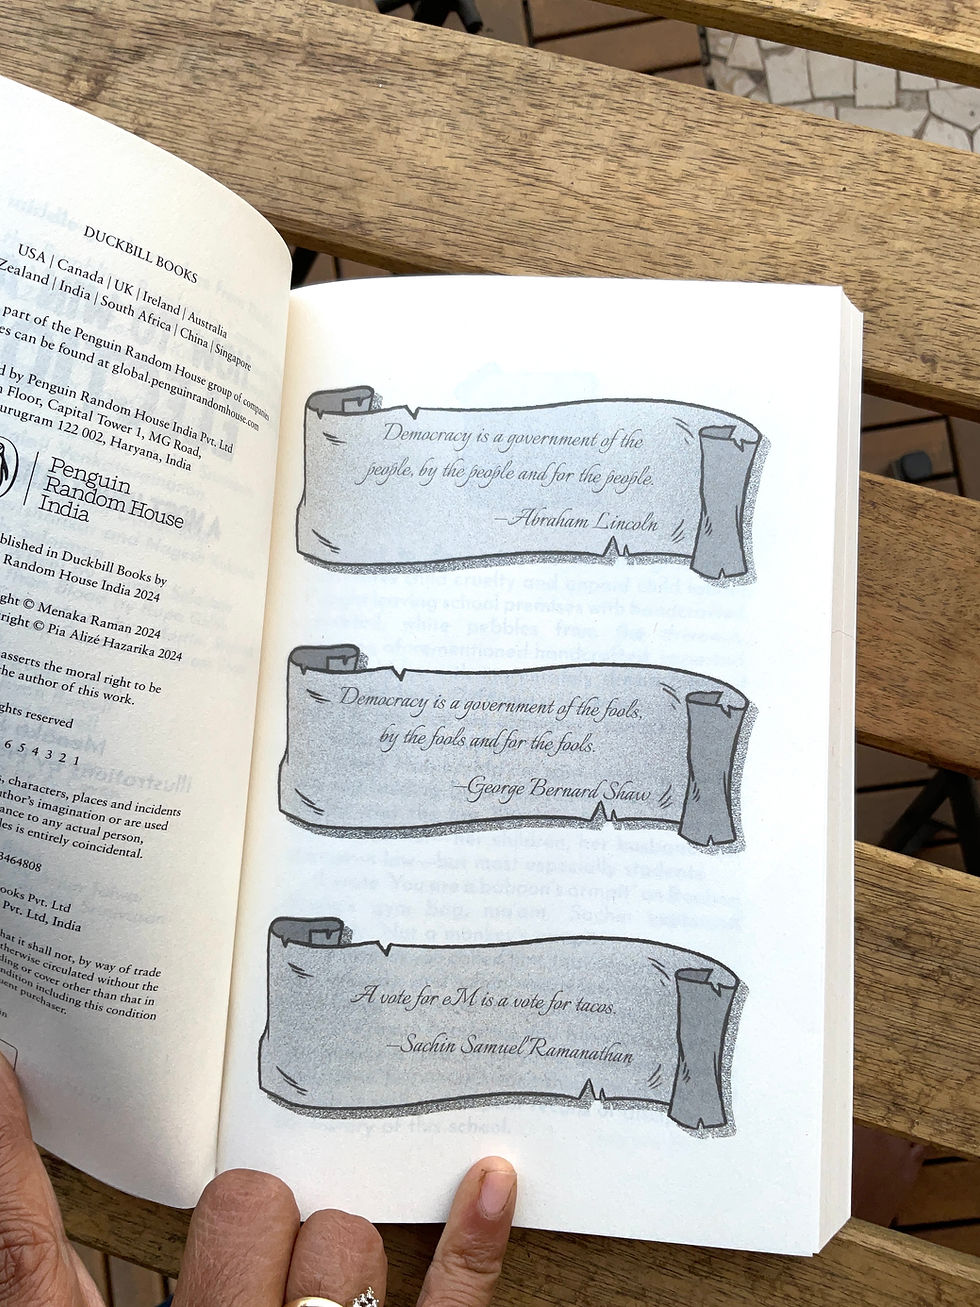 DUCKBILL BOOKS
USA | Canada | UK | Ireland | Australia
Zealand | India | South Africa | China | Singapore
part of the Penguin Random House group of companies
can be found at global.penguinrandomhouse.com
by Penguin Random House India Pvt. Ltd
Floor, Capital Tower 1, MG Road,
122 002, Haryana, India
Penguin
Random House
India
in Duckbill Books by
Random House India 2024
© Menaka Raman 2024
© Pia Alizé Hazarika 2024
asserts the moral right to be
the author of this work.
reserved
6 5 4 3 2 1
characters, places and incidents
imagination or are used
to any actual person,
is entirely coincidental.
3464808
Pvt. Ltd
Pvt. Ltd, India
that it shall not, by way of trade
circulated without the
or cover other than that in
including this condition
purchaser.
Democracy is a government of the
people, by the people and for the people.
—Abraham Lincoln
Democracy is a government of the fools,
by the fools and for the fools.
—George Bernard Shaw
A vote for eM is a vote for tacos.
—Sachin Samuel Ramanathan